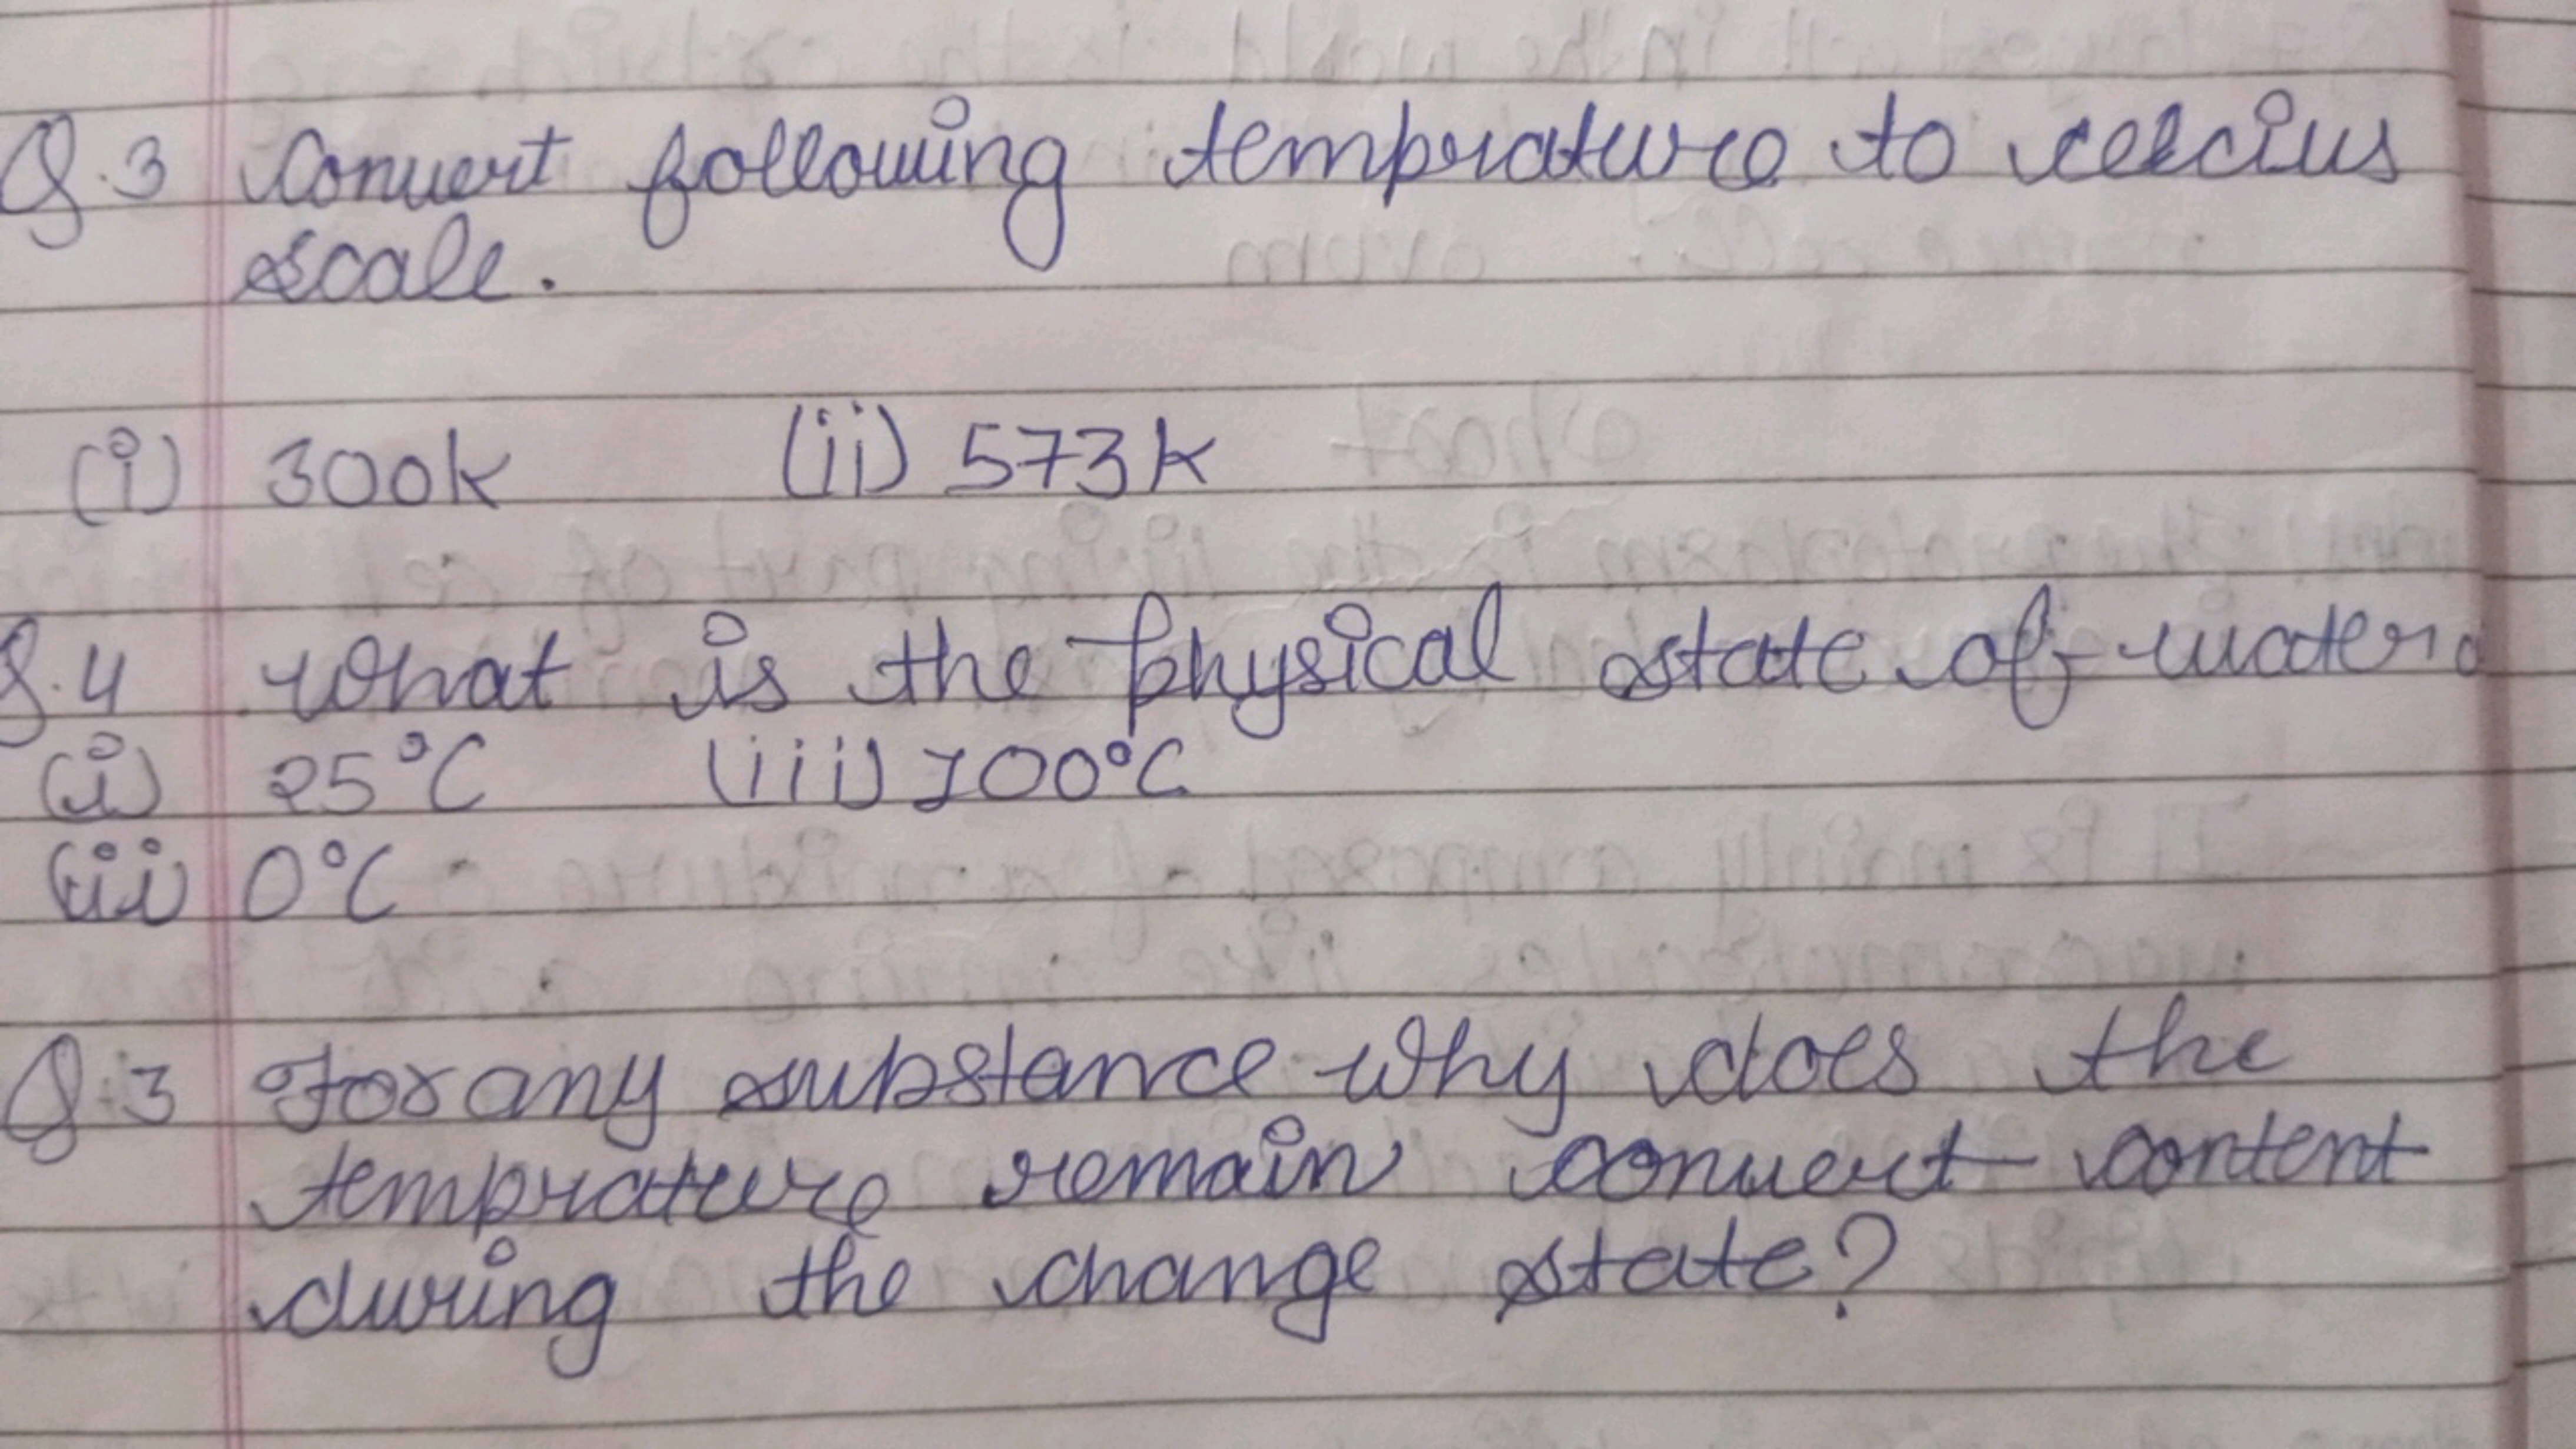 Q.3 Convert following temprature to celcius
scale.
(i) 300k (ii) 573k
Q.4 What is the physical state of water
(i) 25°C (iii) 100°C
(ii) 0°C
Q.3 For any substance why does the
temprature remain convert content
during the change state?